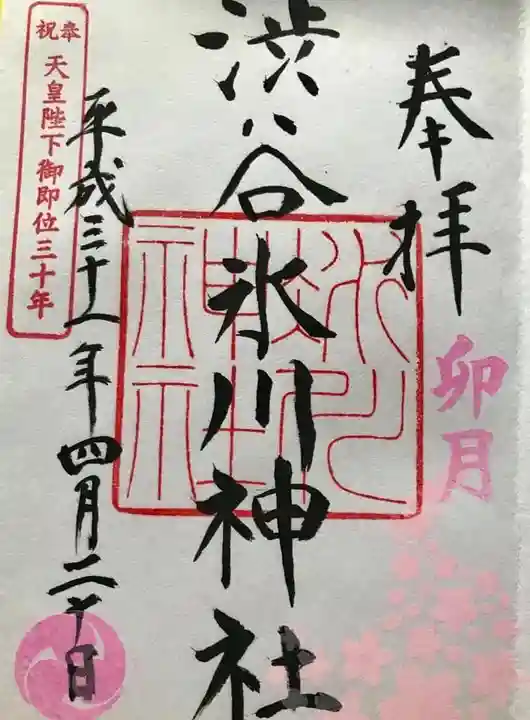 奉拝
卯月
渋谷氷川神社
氷川
神社
平成三十一年四月二十日
奉祝
天皇陛下御即位三十年